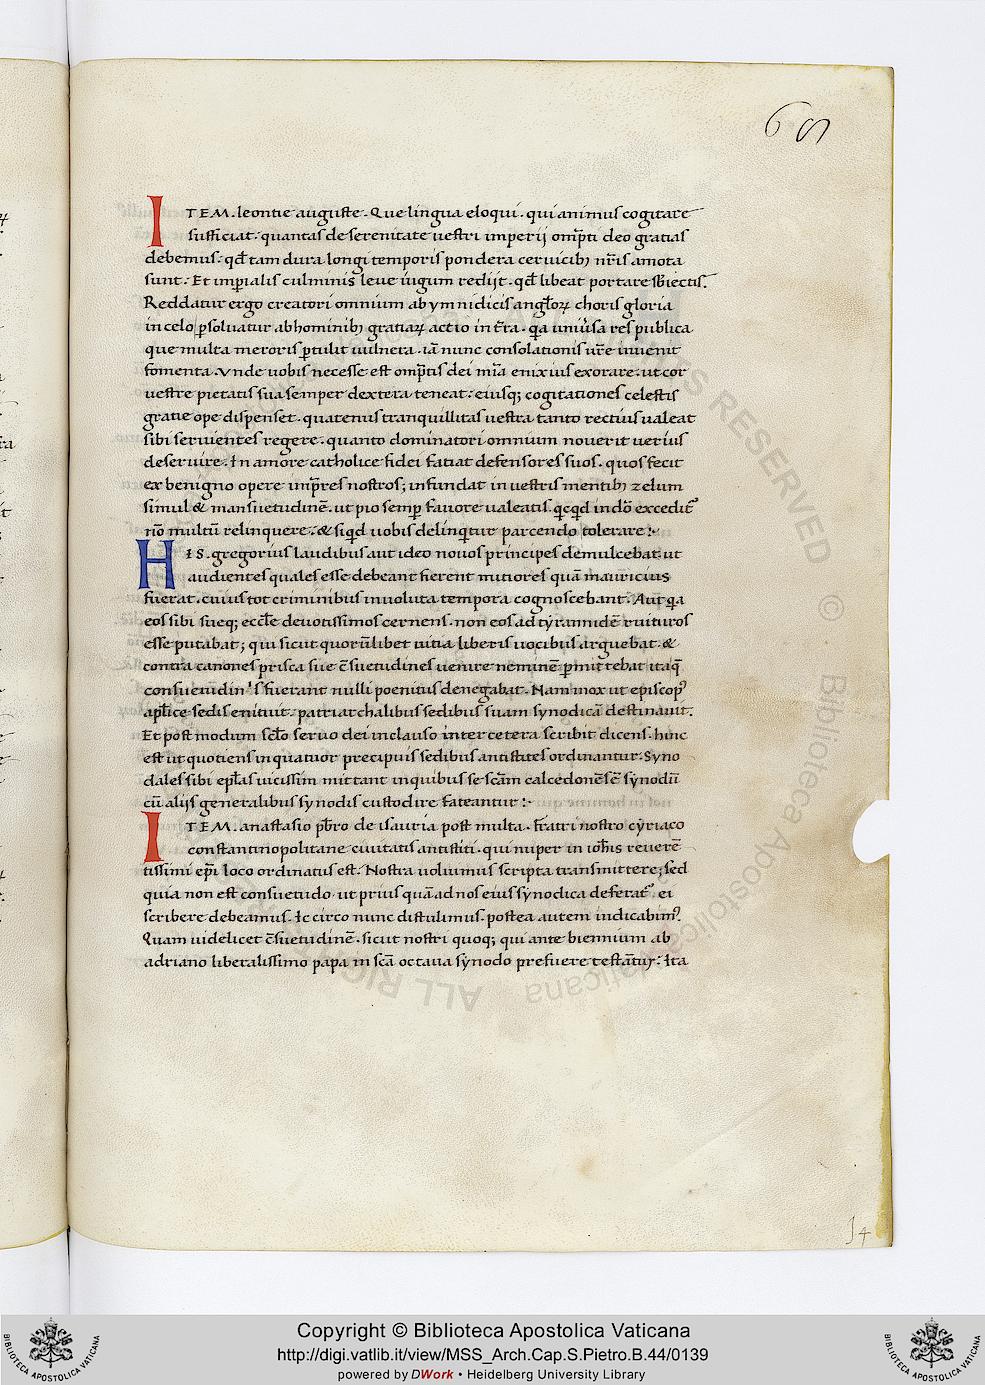 68
ITEM. leontie auguste. Que lingua eloqui. qui animus cogitare
sufficiat. quantas de serenitate uestri imperij omp̄ti deo gratias
debemus: qd̄ tam dura longi temporis pondera ceruicibꝫ nr̄is amota
sunt. Et imp̄ialis culminis leue iugum redijt. qd̄ libeat portare sb̄iectis.
Reddatur ergo creatori omnium ab ymnidicis angl̄oꝝ choris gloria
in celo p̄soluatur ab hominibꝫ gratiaꝝ actio in t̄ra. q̄a uniu̓sa res publica
que multa meroris p̄tulit uulnera. iā nunc consolationis ur̄e inuenit
fomenta. Vnde uobis necesse est omp̄tis dei mīa enixius exorare. ut cor
uestre pietatis sua semper dextera teneat: eiusqꝫ cogitationes celestis
gratie ope dispenset. quatenus tranquillitas uestra tanto rectius ualeat
sibi seruientes regere. quanto dominatori omnium nouerit uerius
deseruire. In amore catholice fidei fatiat defensores suos. quos fecit
ex benigno opere imp̄res nostros; infundat in uestris mentibꝫ zelum
simul & mansuetudinē. ut pio semꝑ fauore ualeatis. qicqd in dō excedit᷒
nō multū relinquere. & siqd uobis delinqitur parcendo tolerare:·
HIS. gregorius laudibus aut ideo nouos principes demulcebat. ut
audientes quales esse debeant fierent mitiores quā mauricius
fuerat. cuius tot criminibus inuoluta tempora cognoscebant. Aut q̄a
eos sibi sueqꝫ eccl̄e deuotissimos cernens. non eos ad tyrannidē ruituros
esse putabat; qui sicut quorūlibet uitia liberis uocibus arguebat. &
contra canones prisca sue c̄suetudines uenire neminē p̄mittebat itaq̄
consuetudinis fuerant nulli poenitus denegabat. Nam mox ut episcop᷒
apl̄ice sedis enituit. patriarchalibus sedibus suam synodicā destinauit.
Et post modum scl̄o seruo dei inclauso inter cetera scribit dicens. hinc
est ut quotiens in quatuor precipuis sedibus antistites ordinantur. Syno
dales sibi epl̄as uicissim mittant in quibus se scām calcedonēsē synodū
cū alijs generalibus synodis custodire fateantur:·
ITEM. anastasio pb̄ro de isauria post multa. Fratri nostro cyriaco
constantinopolitane ciuitatis antistiti. qui nuper in ioh̄is reuerē
tissimi ep̄i loco ordinatus est. Nostra uoluimus scripta transmittere; sed
quia non est consuetudo. ut prius quā ad nos eius synodica deferat᷒. ei
scribere debeamus. Ic circo nunc distulimus. postea autem indicabim᷒.
Quam uidelicet c̄suetudinē. sicut nostri quoqꝫ qui ante biennium ab
adriano liberalissimo papa in scā octaua synodo prefuere testāt᷒. Ita
14
Copyright © Biblioteca Apostolica Vaticana
http://digi.vatlib.it/view/MSS_Arch.Cap.S.Pietro.B.44/0139
powered by DWork • Heidelberg University Library